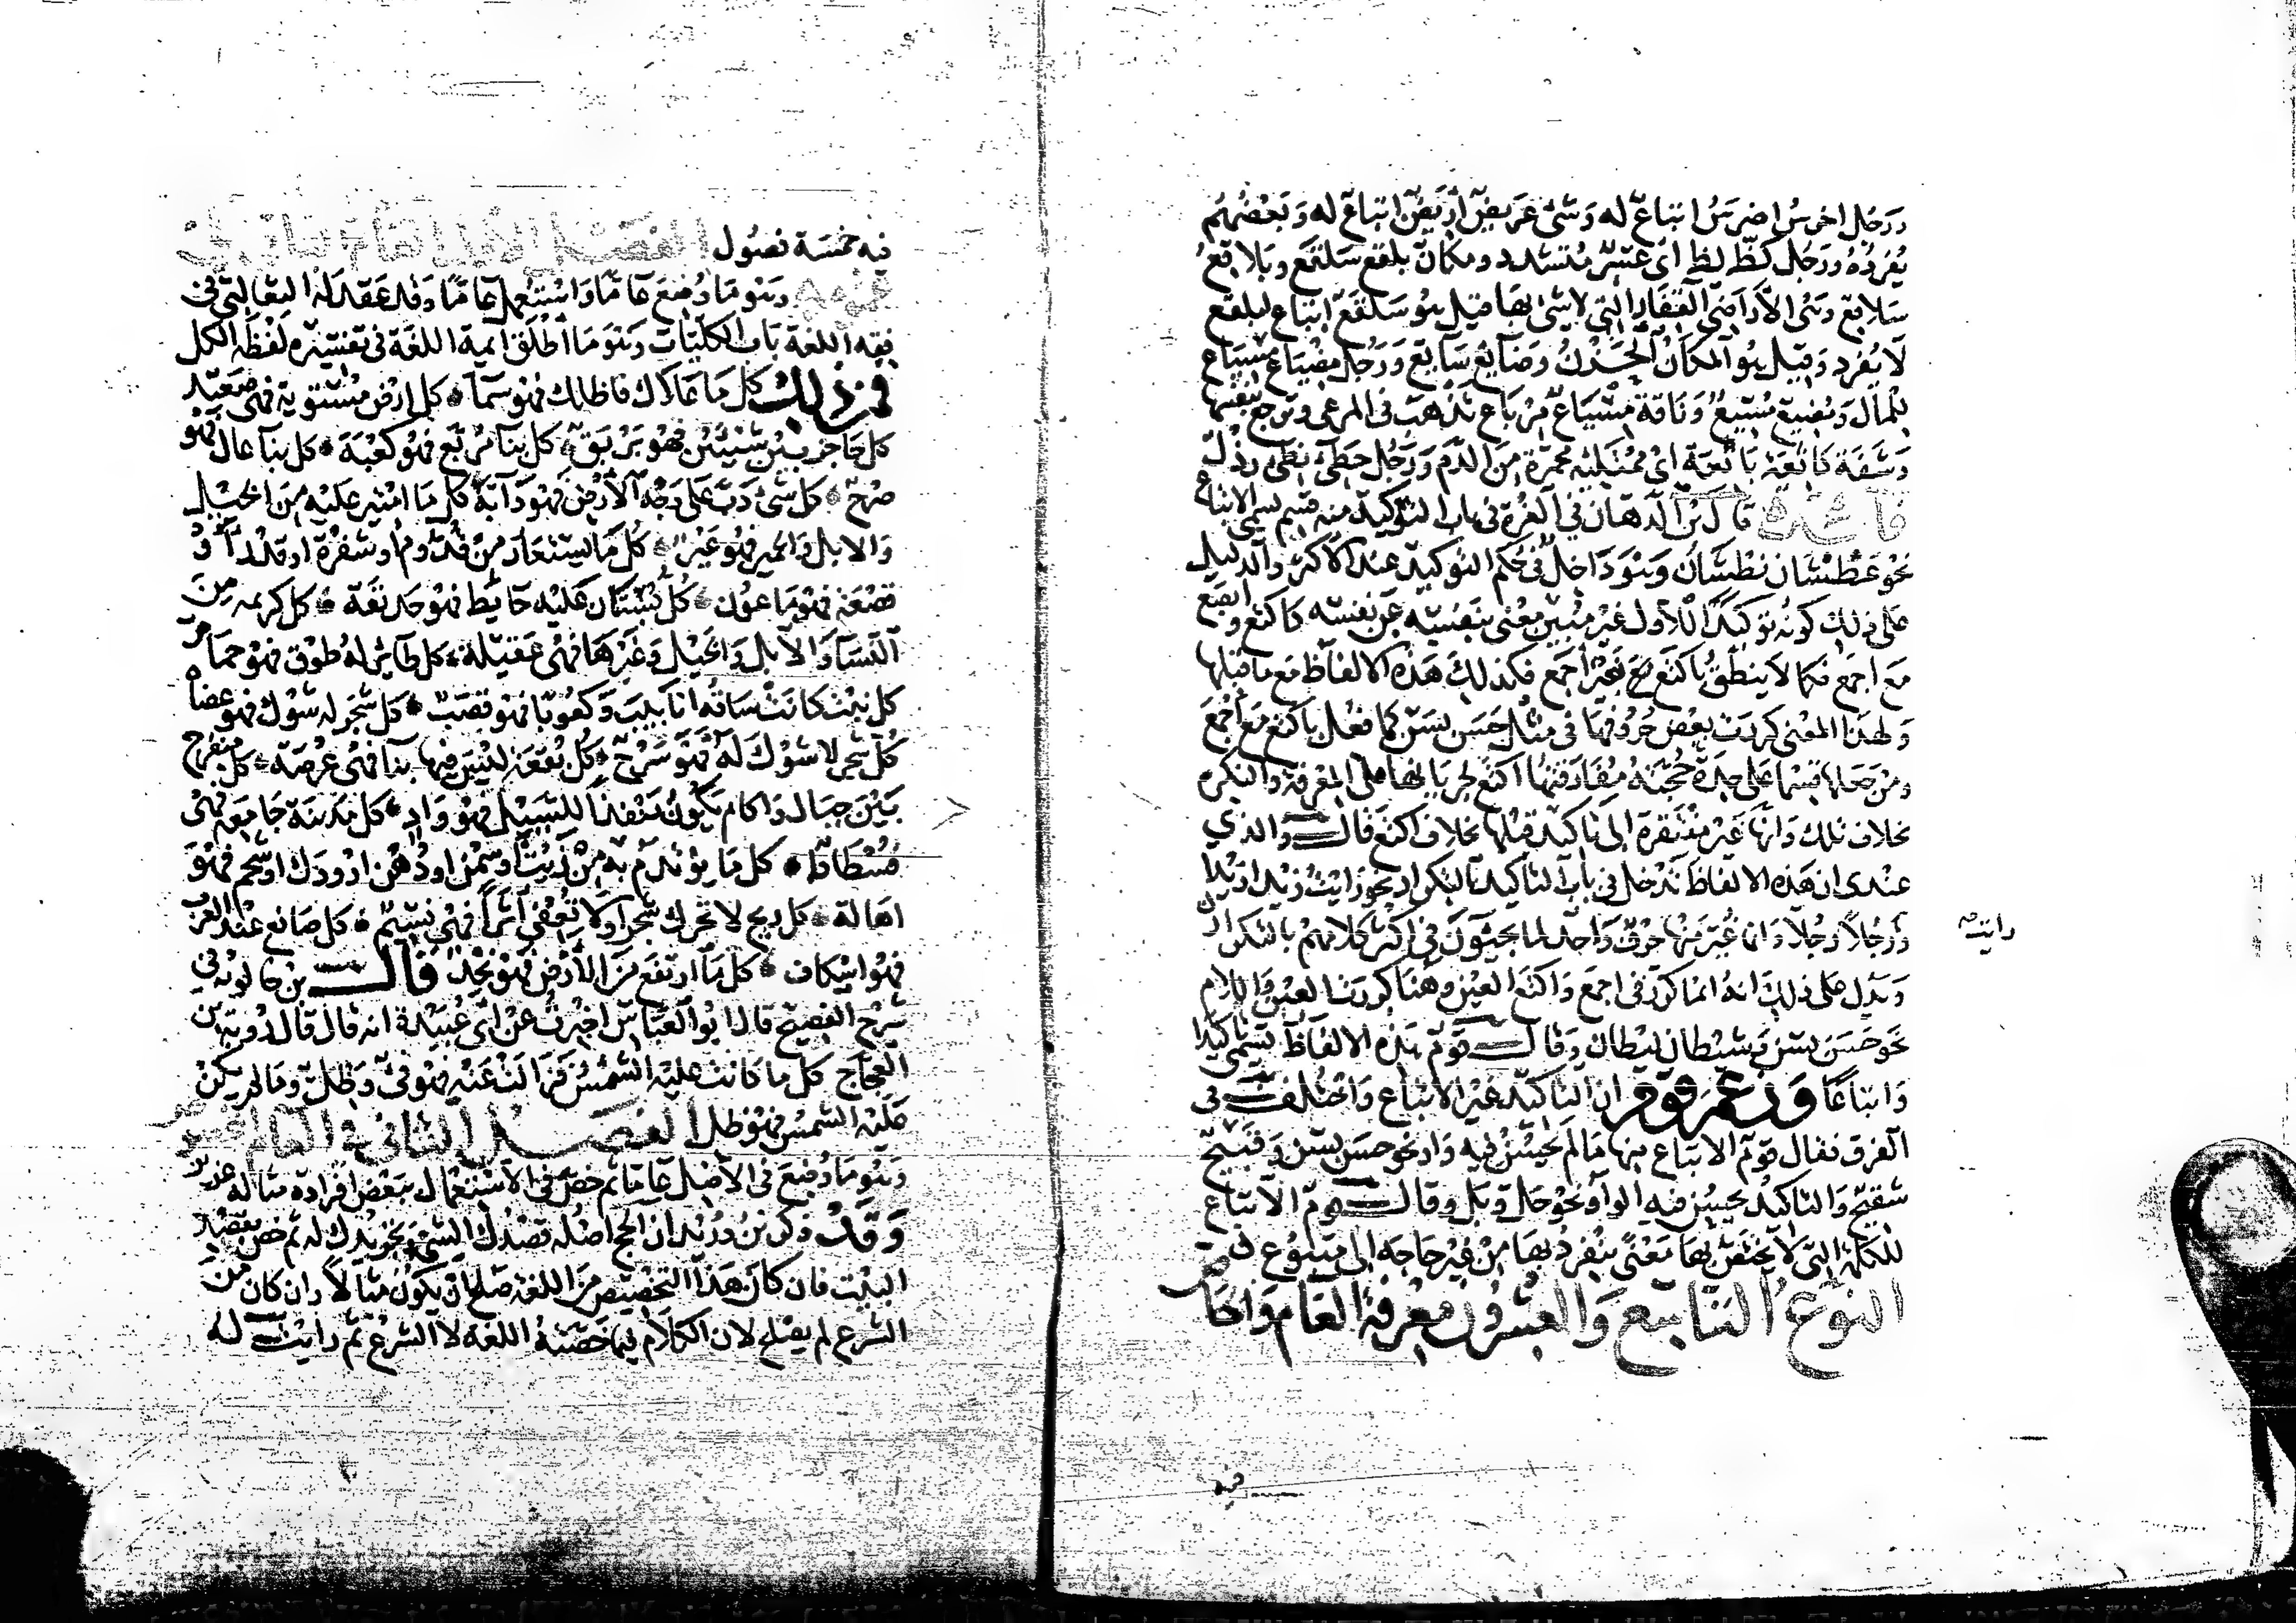 ورجل اخرس اضرس اتباع له وشئ عريض اريض اتباع له وبعضهم
يفرده ورجل كظ لظ اى عسر متشدد ومكان بلقع سلقع وبلاقع
سلاقع وهى الاراضى القفار التى لا شئ بها قيل هو سلقع اتباع لبلقع
لا يفرد وقيل هو المكان الحزن وضايع سايع ورجل مضياع مسياع
للمال ومضيع مسيع وناقة مسياع مرياع تذهب فى المرعى وترجع بنفسها
وشفة كاثعة باثعة اى ممتليه محمرة من الدم ورجل حطئ نطئ رذل
فايدة قال بن الدهان فى الغرة فى باب التوكيد منه قسم يسمى الاتباع
نحو عطشان نطشان وهو داخل فى حكم التوكيد عند الاكثر والدليل
على ذلك كونه توكيدا للاول غير مبين معنى بنفسه عن نفسه كاكتع وابصع
مع اجمع فكما لا ينطق باكتع بغير اجمع فكذلك هذه الالفاظ مع ما قبلها
ولهذا المعنى كررت بعض حروفها فى مثل حسن بسن كما فعل باكتع مع اجمع
ومن جعلها قسما على حدة حجته مفارقتها اكتع لجريانها على المعرفة والنكره
بخلاف تلك وانها غير مفتقرة الى تاكيد قبلها بخلاف اكتع قال والذي
عندى ان هذه الالفاظ تدخل فى باب التاكيد بالتكرار نحو رايت زيدا زيدا
رايت
ورجلا رجلا وانما غير منها حرف واحد لما يجيئون فى اكثر كلامهم بالتكرار
ويدل على ذلك انه انما كرر فى اجمع واكتع العين وهنا كررت العين واللام
نحو حسن بسن وشيطان ليطان وقال قوم هذه الالفاظ تسمى تاكيدا
واتباعا وزعم قوم ان التاكيد غير الاتباع واختلف فى
الفرق فقال قوم الاتباع منها ما لم يحسن فيه واو نحو حسن بسن وقبيح
شقيح والتاكيد يحسن فيه الواو نحو حل وبل وقال قوم الاتباع
للكلمة التى لا يختص بها معنى ينفرد بها من غير حاجه الى متبوع
النوع التاسع والعشرون معرفة العام والخاص
فيه خمسة فصول الفصل الاول العام الباقى على
عمومه وهو ما وضع عاما واستعمل عاما وقد عقد له الثعالبى فى
فقه اللغة باب الكليات وهو ما اطلق ايمة اللغة فى تفسيره لفظة الكل
فمن ذلك كل ما علاك فاظلك فهو سما كل ارض مستوية فهى صعيد
كل حاجز بين شيئين فهو برزق كل بنا مربع فهو كعبة كل بنا عال فهو
صرح كل شئ دب على وجه الارض فهو دآبة كل ما امتير عليه من الخيل
والابل والحمير فهو عير كل ما يستعار من قدوم او شفرة او قدر او
قصعة فهو ماعون كل بستان عليه حايط فهو حديقة كل كريمه من
النسآ والابل والخيل وغيرها فهى عقيلة كل طاير له طوق فهو حمام
كل نبت كانت ساقه انابيب وكعوبا فهو قصب كل شجر له شوك فهو عضاه
كل شجر لا شوك له فهو سرح كل بقعة ليس فيها بنآ فهى عرصة كل منفرج
بين جبال واكام يكون منفذا للسيل فهو واد كل مدينة جامعه فهى
فسطاط كل ما يؤتدم به من زيت او سمن او دهن او ودك او شحم فهو
اهالة كل ريح لا تحرك شجرا ولا تعفى اثرا فهى نسيم كل صانع عند العرب
فهو اسكاف كل ما ارتفع من الارض فهو نجد قال بن خالويه فى
شرح الفصيح قال ابو العباس اخبرت عن ابى عبيدة انه قال قال روبة بن
العجاج كل ما كانت عليه الشمس فزالت عنه فهو فئ وظل وما لم يكن
عليه الشمس فهو ظل الفصل الثانى فى العام المخصوص
وهو ما وضع فى الاصل عاما ثم خص فى الاستعمال ببعض افراده مثاله عزيز
وقد ذكر بن دريد ان الحج اصله قصدك الشئ وتجريدك له ثم خص بقصد
البيت فان كان هذا التخصيص من اللغة صلح ان يكون مثالا وان كان من
الشرع لم يصلح لان الكلام فيما خصته اللغة لا الشرع ثم رايت له